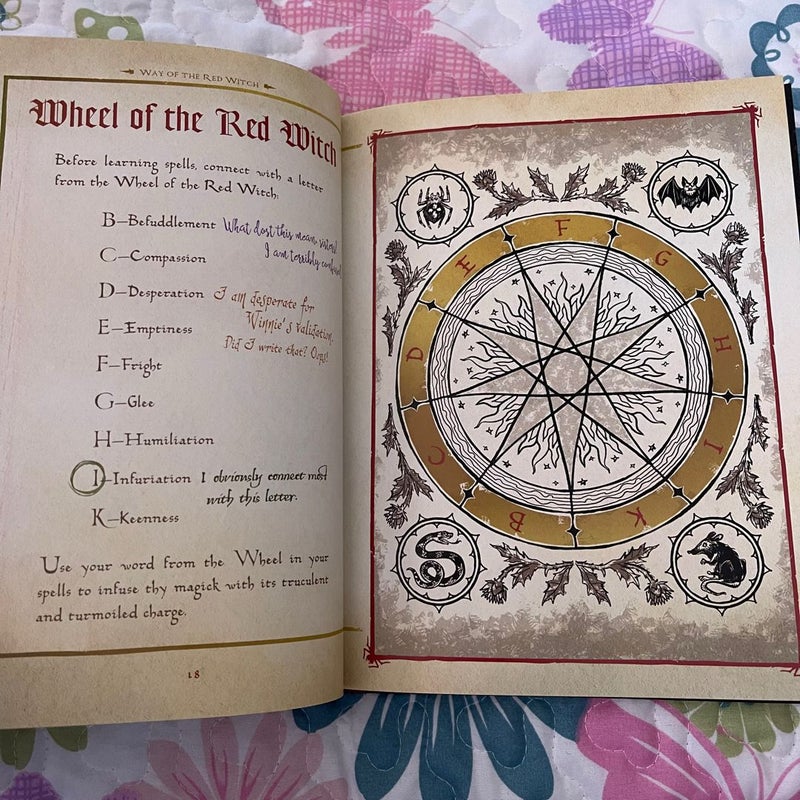 Way of the Red Witch
Wheel of the Red Witch
Before learning spells, connect with a letter
from the Wheel of the Red Witch:
B—Befuddlement What dost this mean, sisters?
I am terribly confused.
C—Compassion
D—Desperation I am desperate for
Winnie's validation.
Did I write that? Oops!
E—Emptiness
F—Fright
G—Glee
H—Humiliation
I—Infuriation I obviously connect most
with this letter.
K—Keenness
Use your word from the Wheel in your
spells to infuse thy magick with its truculent
and turmoiled charge.
18
B
C
D
E
F
G
H
I
K